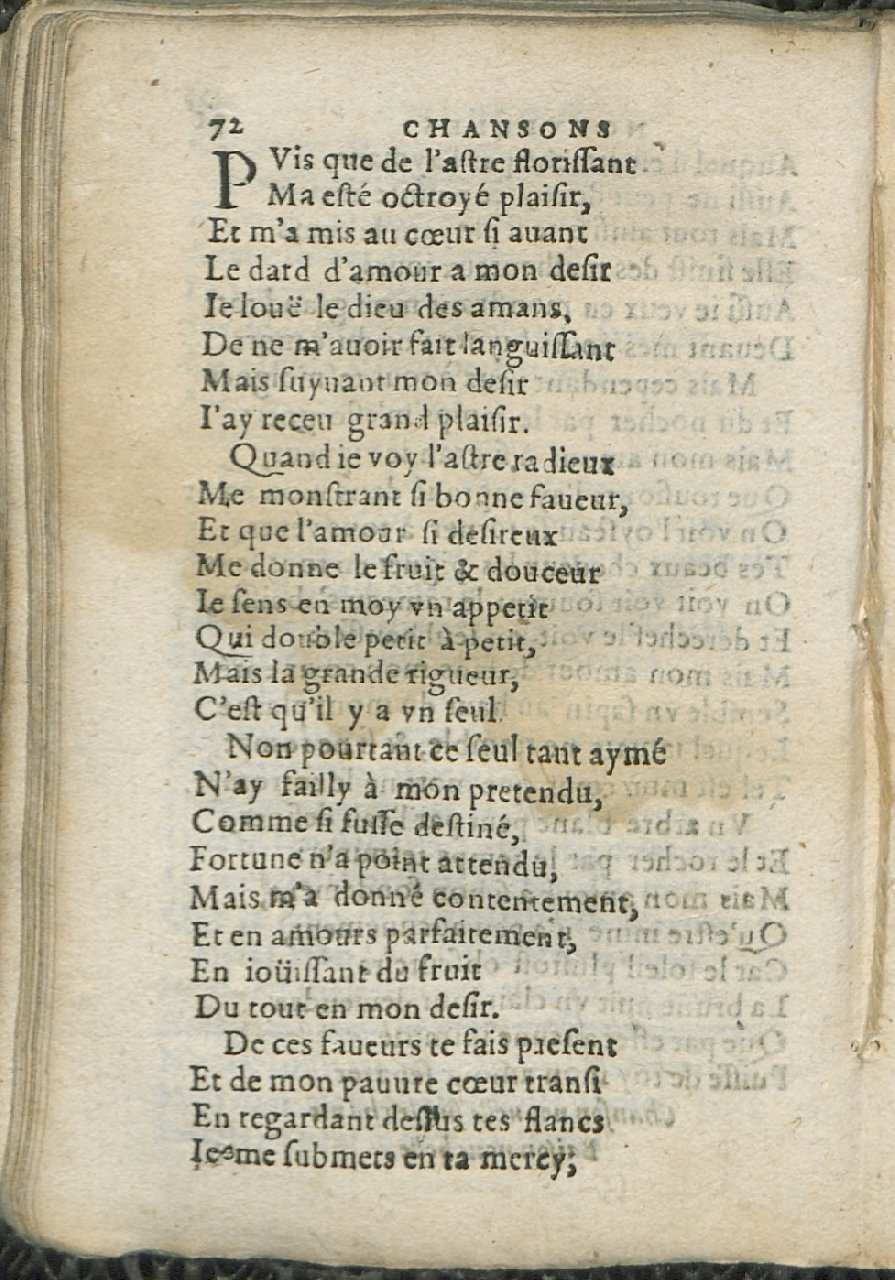 72 CHANSONS
PVis que de l'aſtre floriſſant
Ma eſté octroyé plaiſir,
Et m'a mis au cœur ſi auant
Le dard d'amour a mon deſir
Ie louë le dieu des amans,
De ne m'auoir fait languiſſant
Mais ſuyuant mon deſir
I'ay receu grand plaiſir.
Quand ie voy l'aſtre radieux
Me monſtrant ſi bonne faueur,
Et que l'amour ſi deſireux
Me donne le fruit & douceur
Ie ſens en moy vn appetit
Qui double petit à petit,
Mais la grande rigueur,
C'eſt qu'il y a vn ſeul.
Non pourtant ce ſeul tant aymé
N'ay failly à mon pretendu,
Comme ſi fuſſe deſtiné,
Fortune n'a point attendu,
Mais m'a donné contentement,
Et en amours parfaitement,
En ioüiſſant du fruit
Du tout en mon deſir.
De ces faueurs te fais preſent
Et de mon pauure cœur tranſi
En regardant deſſus tes flancs
Ie me ſubmets en ta mercy;